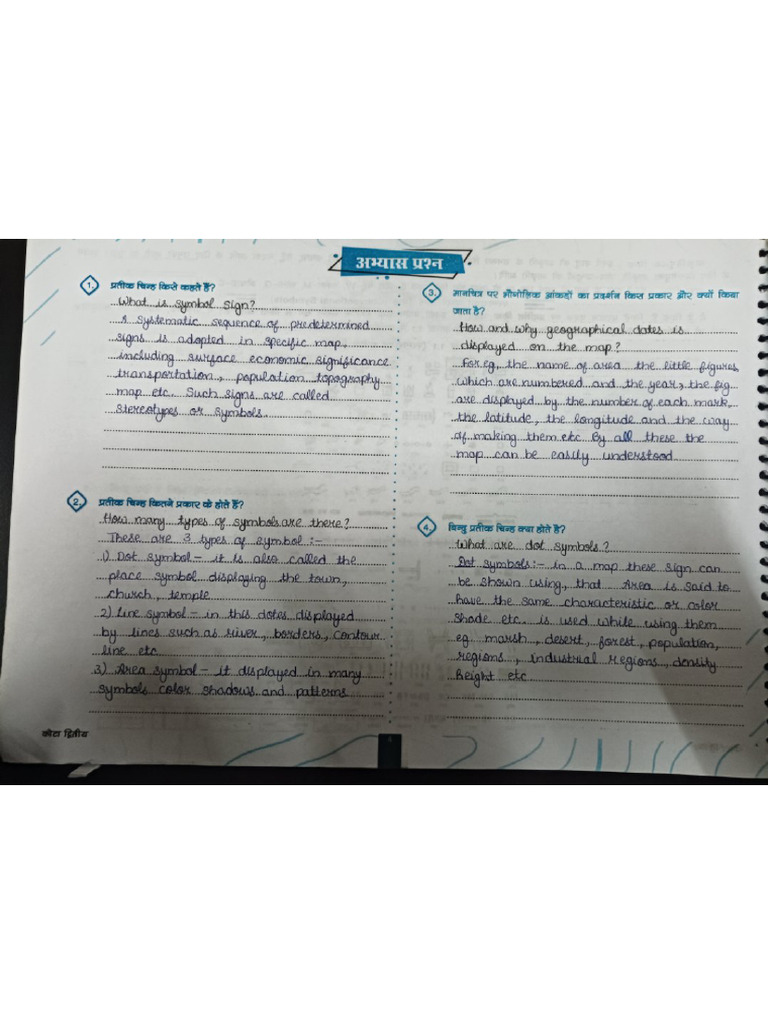 अभ्यास प्रश्न
1. प्रतीक चिन्ह किसे कहते हैं?
What is symbol sign?
A systematic sequence of predetermined
signs is adopted in specific map.
including surface economic significance
transportation, population topography
map etc. Such signs are called
stereotypes or symbols.
2. प्रतीक चिन्ह कितने प्रकार के होते हैं?
How many types of symbols are there?
These are 3 types of symbol :-
1) Dot symbol - it is also called the
place symbol displaging the town,
church, temple
2) Line symbol - in this dotes displayed
by lines such as river, borders, contour
line etc.
3) Area symbol - it displayed in many
symbols color shadows and patterns
3. मानचित्र पर भौगोलिक आंकड़ों का प्रदर्शन किस प्रकार और क्यों किया
जाता है?
How and why geographical dates is
displayed on the map?
For eg, the name of area the little figures
which are numbered and the year, the fig
are displayed by the number of each mark,
the latitude, the longitude and the way
of making them etc. By all these the
map can be easily understood
4. बिन्दु प्रतीक चिन्ह क्या होते हैं?
What are dot symbols?
Dot symbols :- in a map these sign can
be shown using, that Area is said to
have the same characteristic or color
shade etc. is used while using them
eg. marsh, desert, forest, population,
regions, industrial regions, density
height etc
कोटा द्वितीय